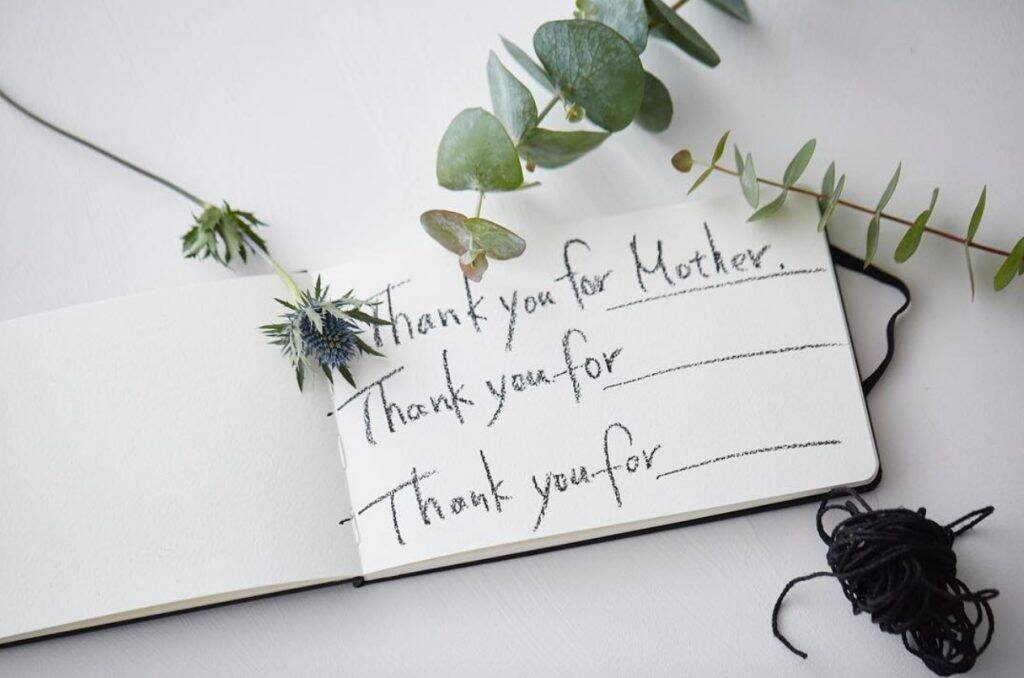 Thank you for Mother.
Thank you for
Thank you for